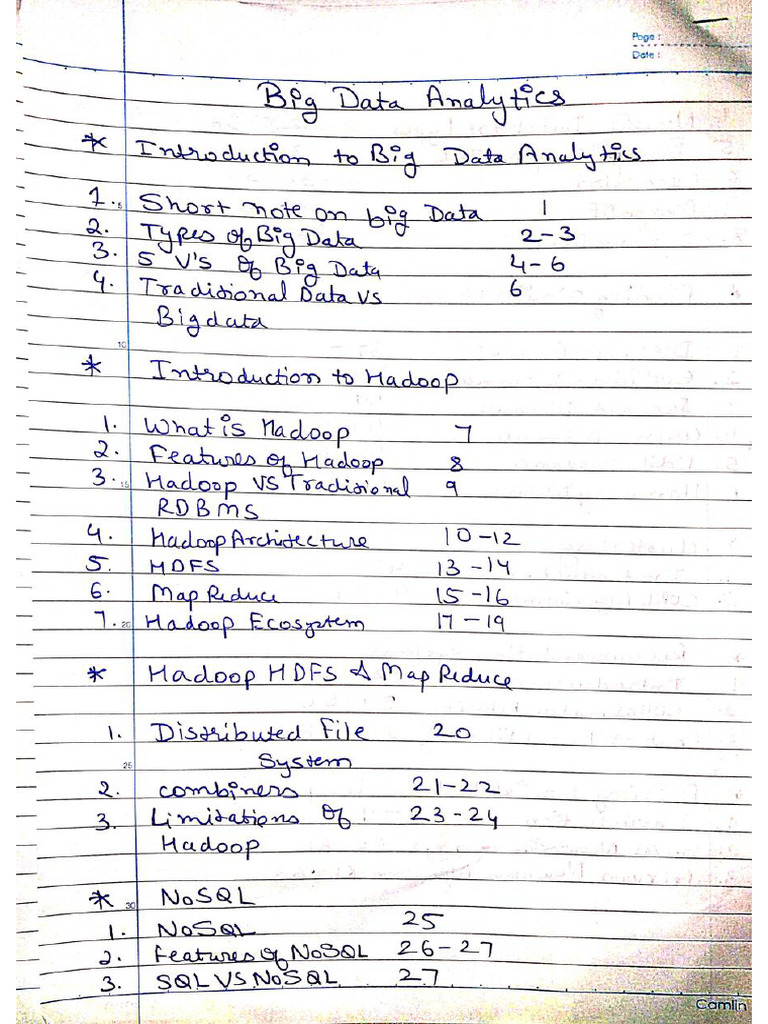 Page :
Date :
Big Data Analytics
* Introduction to Big Data Analytics
1. 5 Short note on big Data 1
2. Types of Big Data 2-3
3. 5 V's of Big Data 4-6
4. Traditional Data vs 6
Big data
10
* Introduction to Hadoop
1. What is Hadoop 7
2. Features of Hadoop 8
3. 15 Hadoop vs Traditional 9
RDBMS
4. Hadoop Architecture 10-12
5. HDFS 13-14
6. Map Reduce 15-16
7. 20 Hadoop Ecosystem 17-19
* Hadoop HDFS & Map Reduce
1. Distributed File 20
25 System
2. combiners 21-22
3. Limitations of 23-24
Hadoop
* 30 NoSQL
1. NoSQL 25
2. features of NoSQL 26-27
3. SQL VS NoSQL 27
Camlin